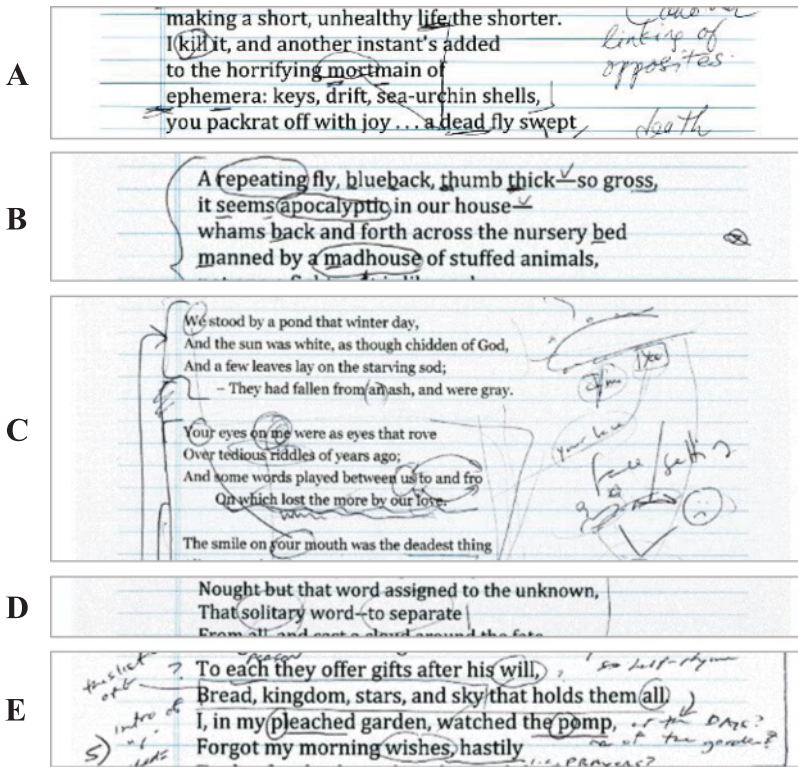 A
making a short, unhealthy life the shorter.
I kill it, and another instant's added
to the horrifying mortmain of
ephemera: keys, drift, sea-urchin shells,
you packrat off with joy . . . a dead fly swept
linking of
opposites.
death
B
A repeating fly, blueback, thumb thick—so gross,
it seems apocalyptic in our house—
whams back and forth across the nursery bed
manned by a madhouse of stuffed animals,
C
We stood by a pond that winter day,
And the sun was white, as though chidden of God,
And a few leaves lay on the starving sod;
– They had fallen from an ash, and were gray.
Your eyes on me were as eyes that rove
Over tedious riddles of years ago;
And some words played between us to and fro
On which lost the more by our love.
The smile on your mouth was the deadest thing
You
your love
face / setting
D
Nought but that word assigned to the unknown,
That solitary word—to separate
From all, and cast a cloud around the fate
E
To each they offer gifts after his will,
Bread, kingdom, stars, and sky that holds them all.
I, in my pleached garden, watched the pomp,
Forgot my morning wishes, hastily
the list
intro of
half-rhyme
DAYS?
of the garden?
PRAYERS?